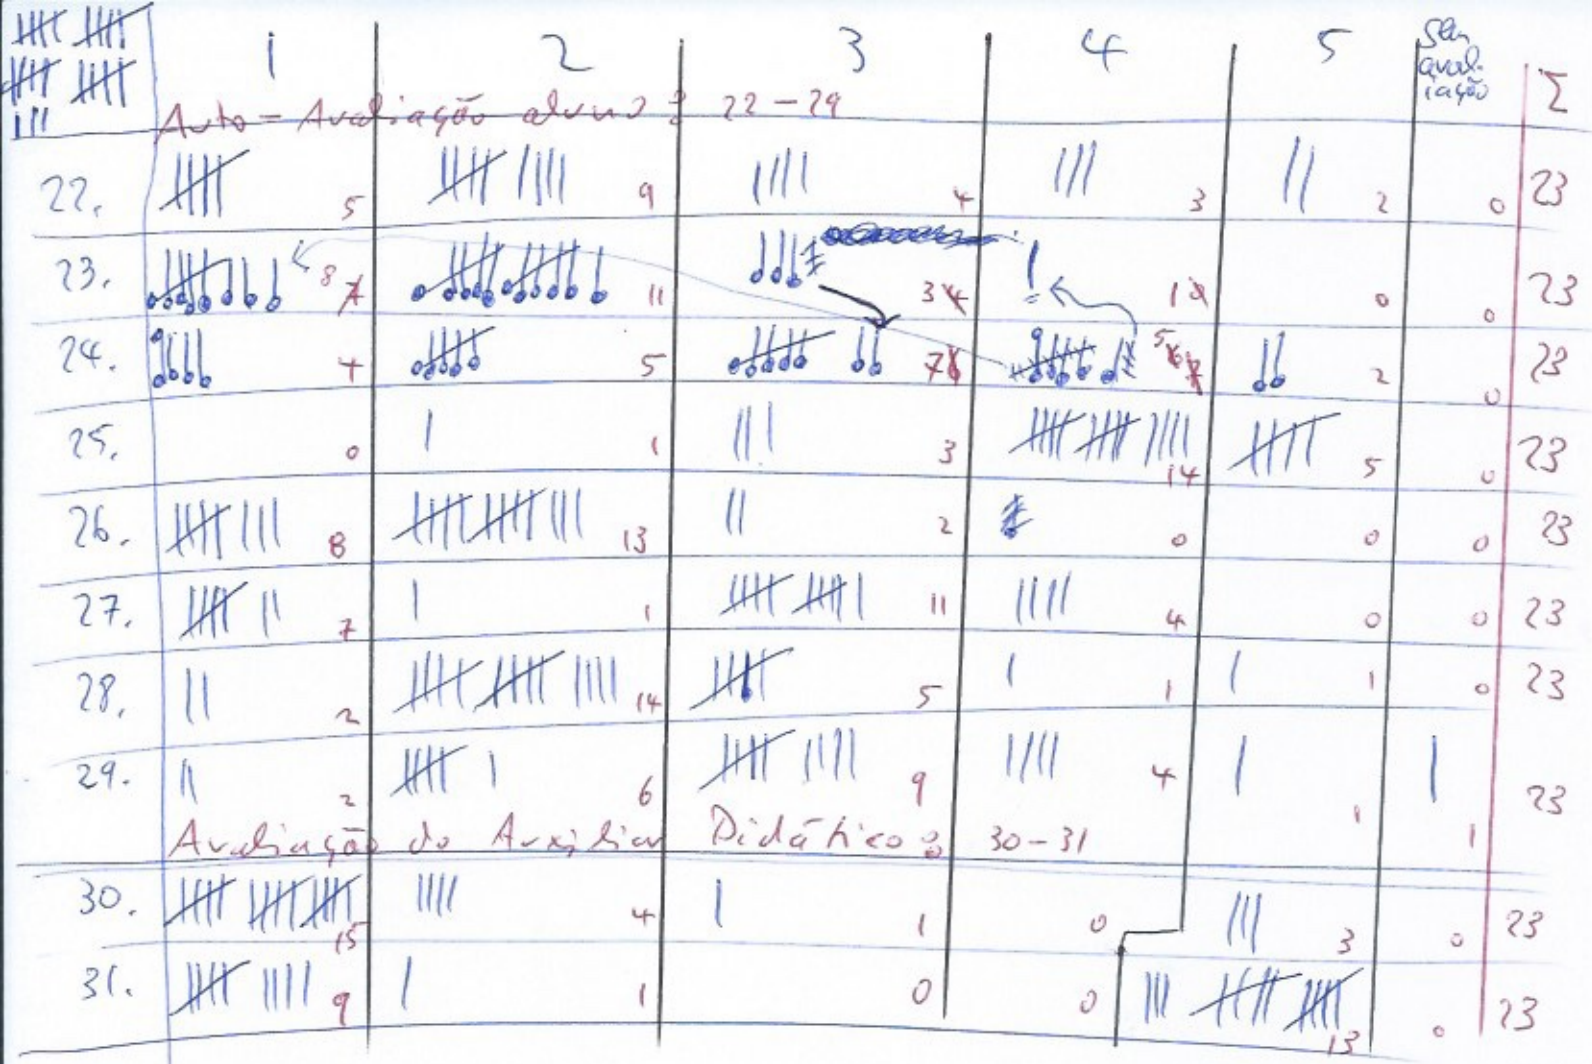 1 2 3 4 5 Sem avaliação Σ
Auto-Avaliação aluno: 22-29
22. 5 9 4 3 2 0 23
23. 8 7 11 3 4 1 0 0 23
24. 4 5 7 5 6 7 2 0 23
25. 0 1 3 14 5 0 23
26. 8 13 2 0 0 0 23
27. 7 1 11 4 0 0 23
28. 2 14 5 1 1 0 23
29. 2 6 9 4 1 1 23
Avaliação do Auxiliar Didático: 30-31
30. 15 4 1 0 3 0 23
31. 9 1 0 0 13 0 23